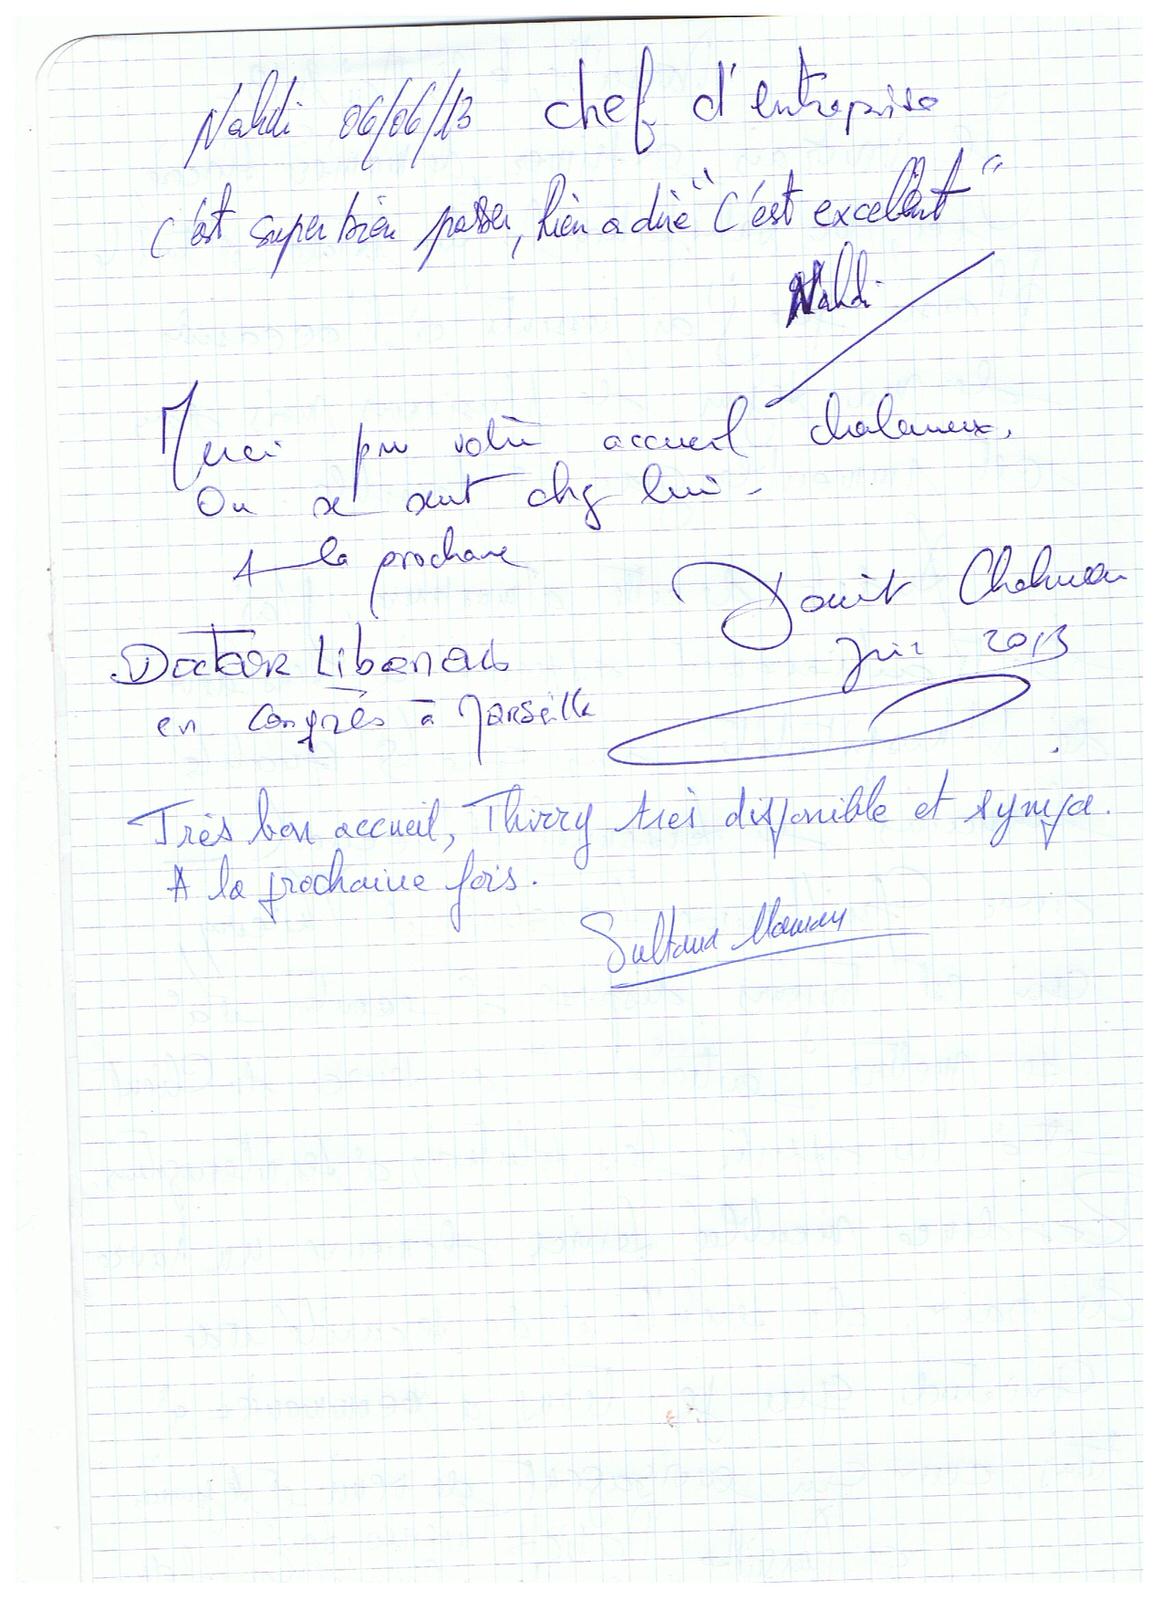 Nahdi 06/06/13 chef d'entreprise
C'est super bien passer, Rien a dire "C'est excellent"
Nahdi
Merci pour votre accueil chaleureux,
On se sent chez lui -
A la prochaine
Juin 2013
Docteur Libanais
en Congrès à Marseille
Très bon accueil, Thierry très disponible et sympa.
A la prochaine fois.
Sultana